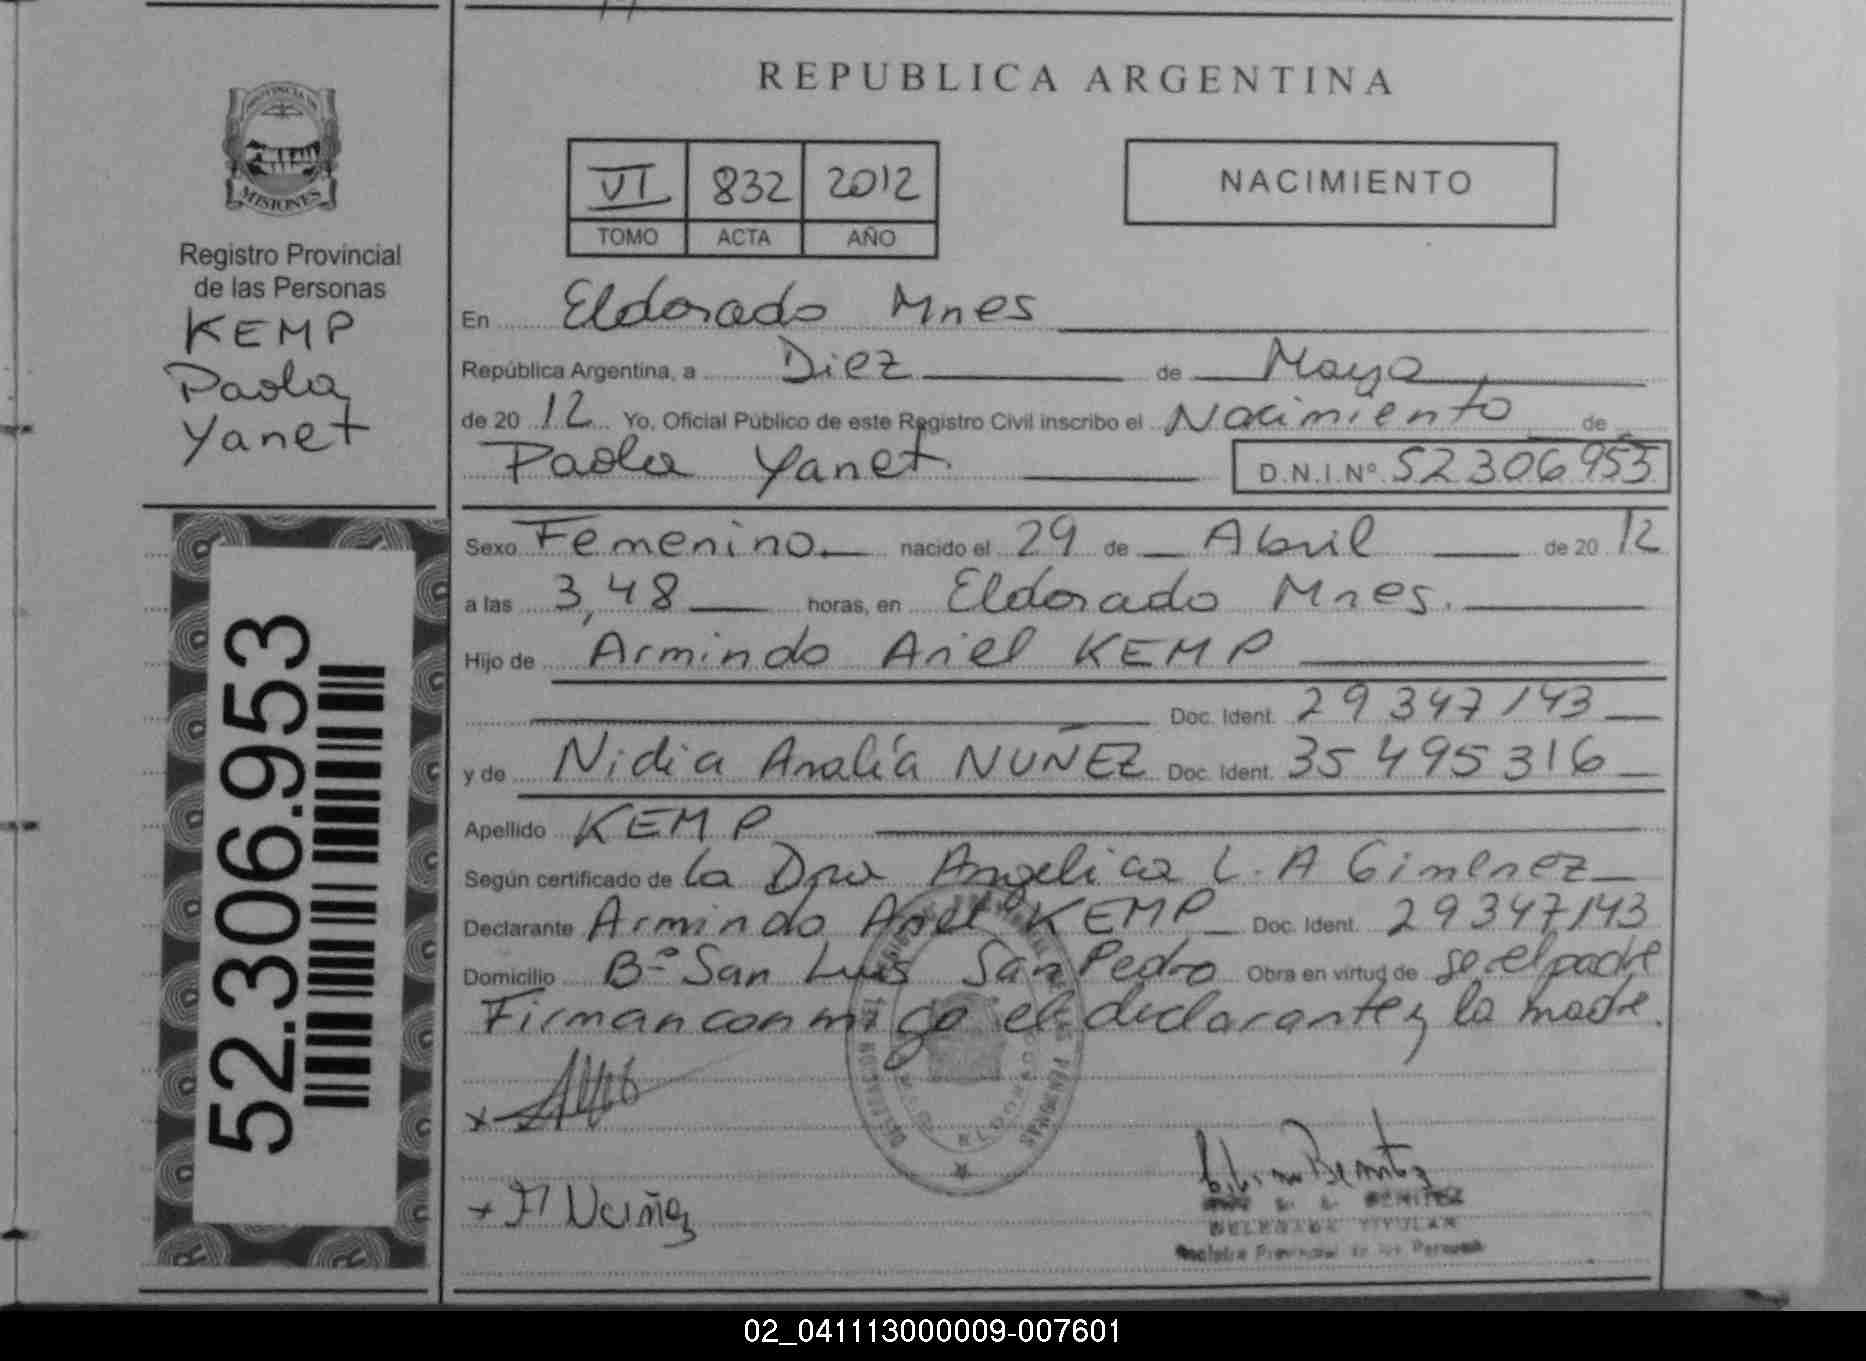 REPUBLICA ARGENTINA
PROVINCIA DE
MISIONES
Registro Provincial
de las Personas
KEMP
Paola
Yanet
52.306.953
VI 832 2012
TOMO ACTA AÑO
NACIMIENTO
En Eldorado Mnes
República Argentina, a Diez de Mayo
de 20 12 Yo, Oficial Público de este Registro Civil inscribo el Nacimiento de
Paola Yanet D.N.I.Nº 52306953
Sexo Femenino nacido el 29 de Abril de 20 12
a las 3,48 horas, en Eldorado Mnes.
Hijo de Armindo Ariel KEMP
Doc. Ident. 29 347 143
y de Nidia Analía NUÑEZ Doc. Ident. 35 495 316
Apellido KEMP
Según certificado de la Dra Angelica L. A Gimenez
Declarante Armindo Ariel KEMP Doc. Ident. 29347143
Domicilio Bº San Luis San Pedro Obra en virtud de se el padre
Firman conmigo el declarante y la madre.
x
x N Nuñez
Benitez
BENITEZ
DELEGADA TITULAR
Registro Provincial de las Personas
02_041113000009-007601